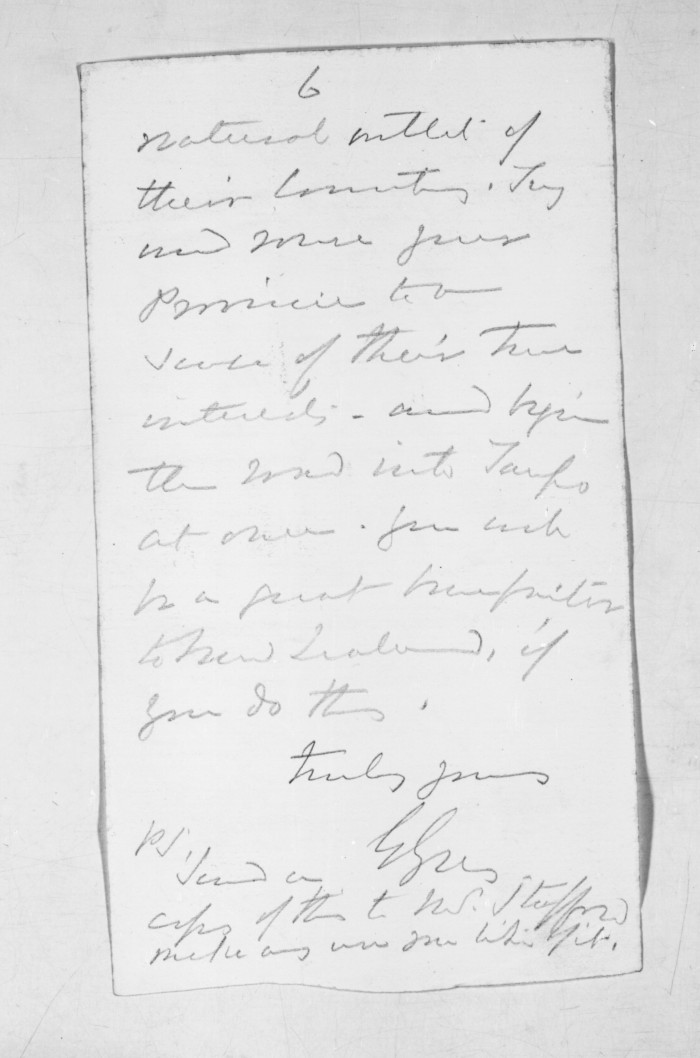 6
natural outlet of
their Country. Try
and rouse your
Province to a
sense of their true
interests - and begin
the road into Taupo
at once. You will
be a great benefactor
to New Zealand, if
you do this.
truly yours
G Grey
PS.
Send a
copy of this to Mr. Stafford
make any use you like of it.